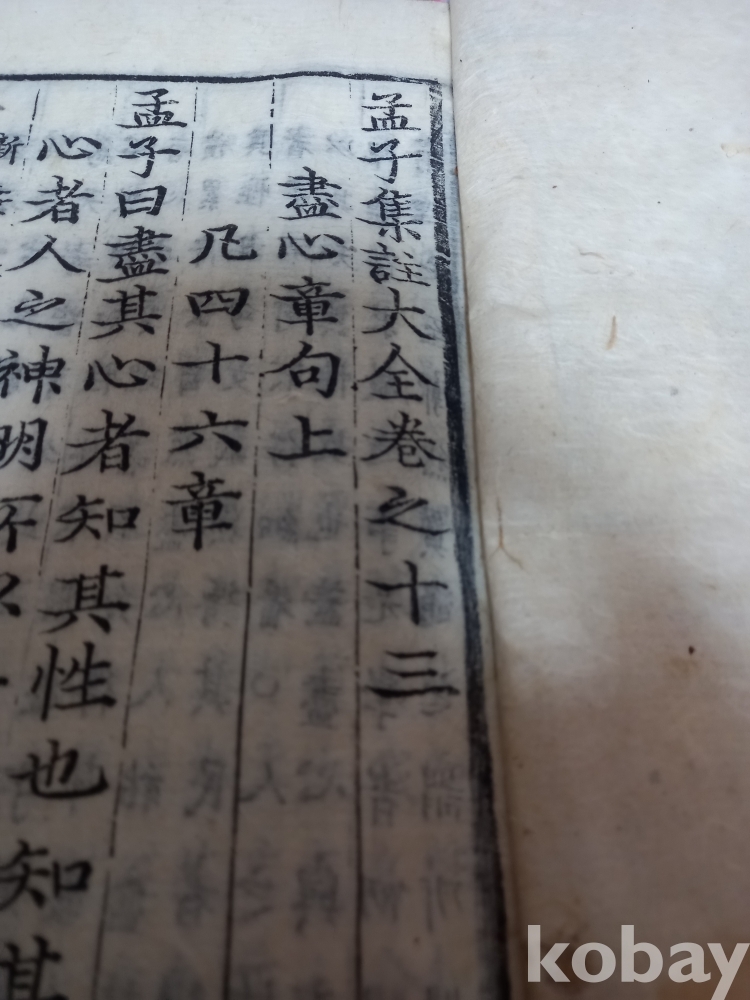 孟子集註大全卷之十三
盡心章句上
凡四十六章
孟子曰盡其心者知其性也知其
心者人之神明
kobay